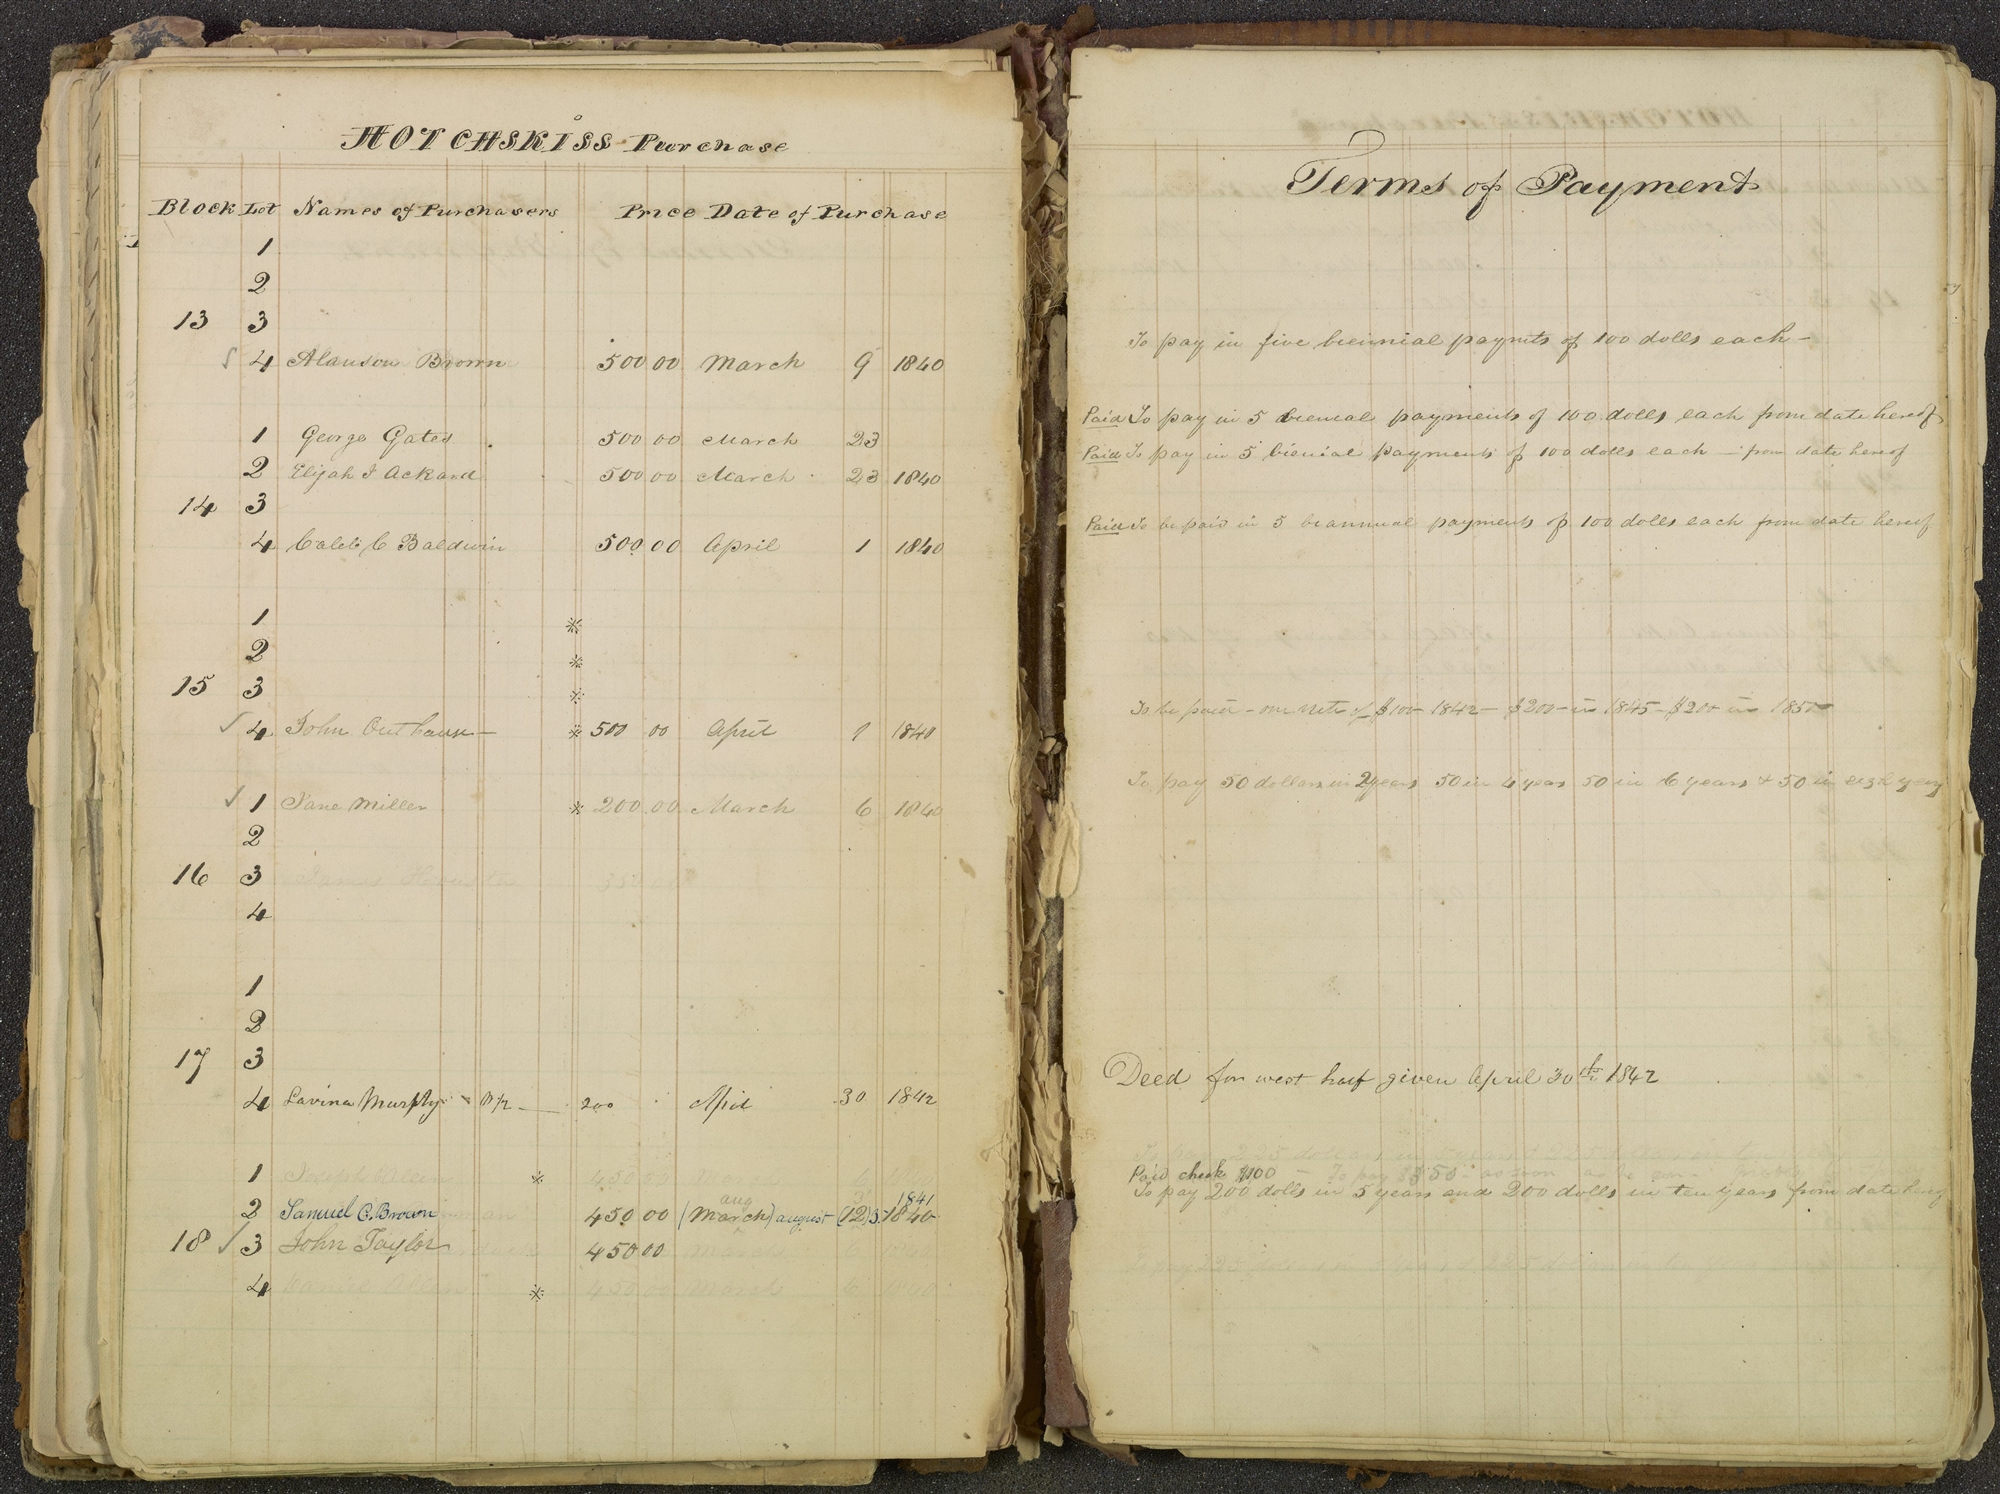 HOTCHSKISS Purchase
Block Lot Names of Purchasers Price Date of Purchase
1
2
13 3
4 Alanson Brown 500 00 March 9 1840
1 George Gates 500 00 March 23
2 Elijah J Ackard 500 00 March 23 1840
14 3
4 Caleb C Baldwin 500 00 April 1 1840
1 ※
2 ※
15 3 ※
4 John Outhouse ※ 500 00 April 1 1840
1 Jane Miller ※ 200.00 March 6 1840
2
16 3 James
4
1
2
17 3
4 Lavina Murphy W 1/2 200 April 30 1842
1 Joseph Allen ※ 450 00 6 1840
aug 1841
2 Samuel C. Brown 450 00 (March) august (12) 3. 1840
18 3 John Taylor 450 00 March
4 Daniel Allen ※ 450 00 March 6 1840
Terms of Payment
To pay in five biennial paymts of 100 dolls each -
Paid To pay in 5 bienial payments of 100 dolls each from date hereof
Paid To pay in 5 bienial payments of 100 dolls each - from date hereof
Paid To be paid in 5 biannual payments of 100 dolls each from date hereof
To be paid - one note of $100- 1842 - $200- in 1845 - $200 in 1850
To pay 50 dollars in 2 years 50 in 4 years 50 in 6 years & 50 in years
Deed for west half given April 30th 1842
To pay 225 dollars in 5 years & 225
Paid check $100 - To pay as soon as he
To pay 200 dolls in 5 years and 200 dolls in ten years from date
To pay 225 dolls in